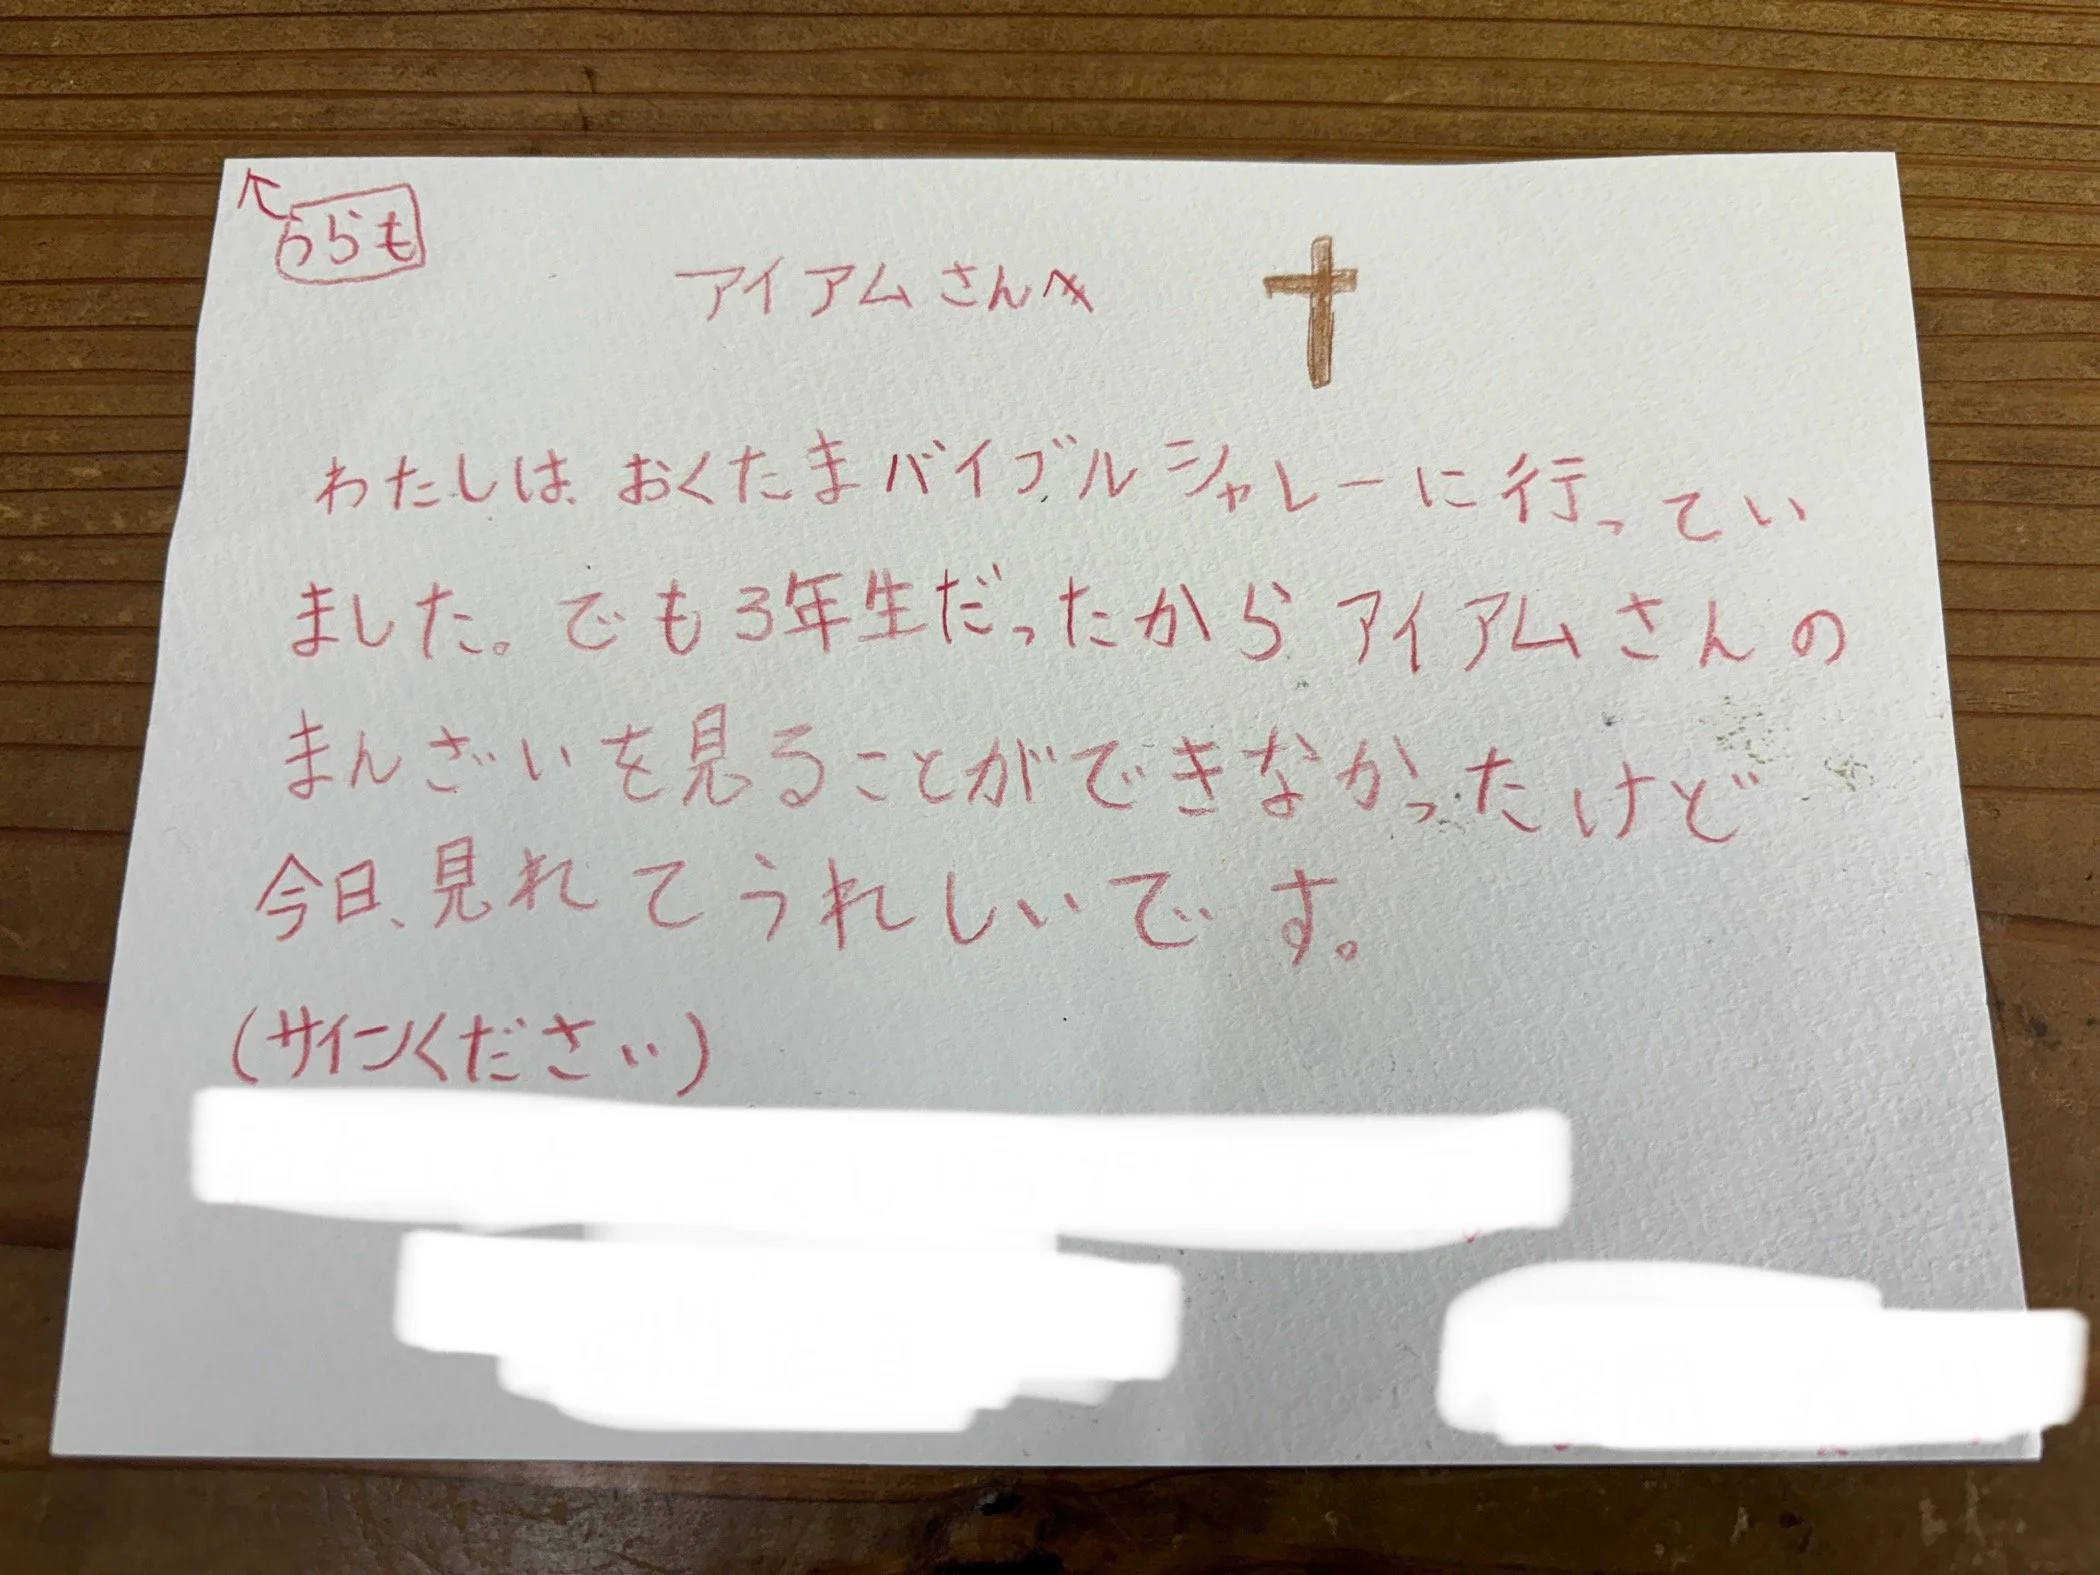 うらも
アイアムさんへ
わたしは、おくたまバイブルシャレーに行ってい
ました。でも3年生だったからアイアムさんの
まんざいを見ることができなかったけど
今日、見れてうれしいです。
(サインください)